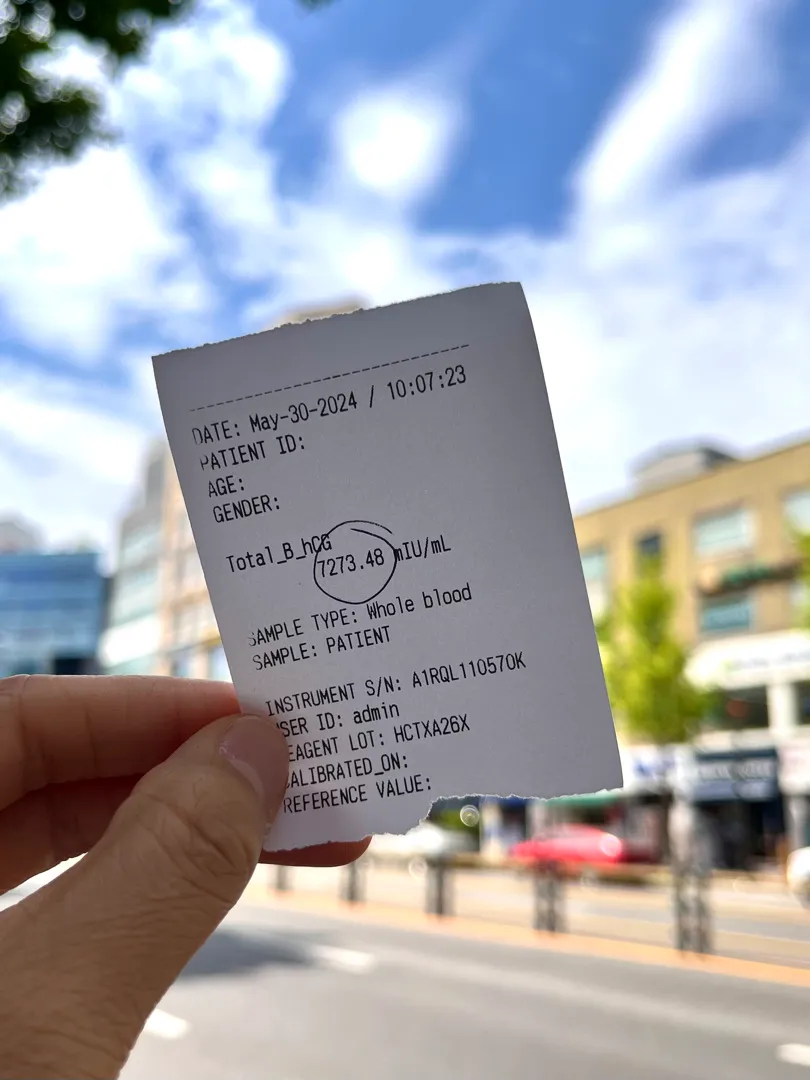 DATE: May-30-2024 / 10:07:23
PATIENT ID:
AGE:
GENDER:
Total_B_hCG
7273.48 mIU/mL
SAMPLE TYPE: Whole blood
SAMPLE: PATIENT
INSTRUMENT S/N: A1RQL110570K
USER ID: admin
REAGENT LOT: HCTXA26X
CALIBRATED_ON:
REFERENCE VALUE: